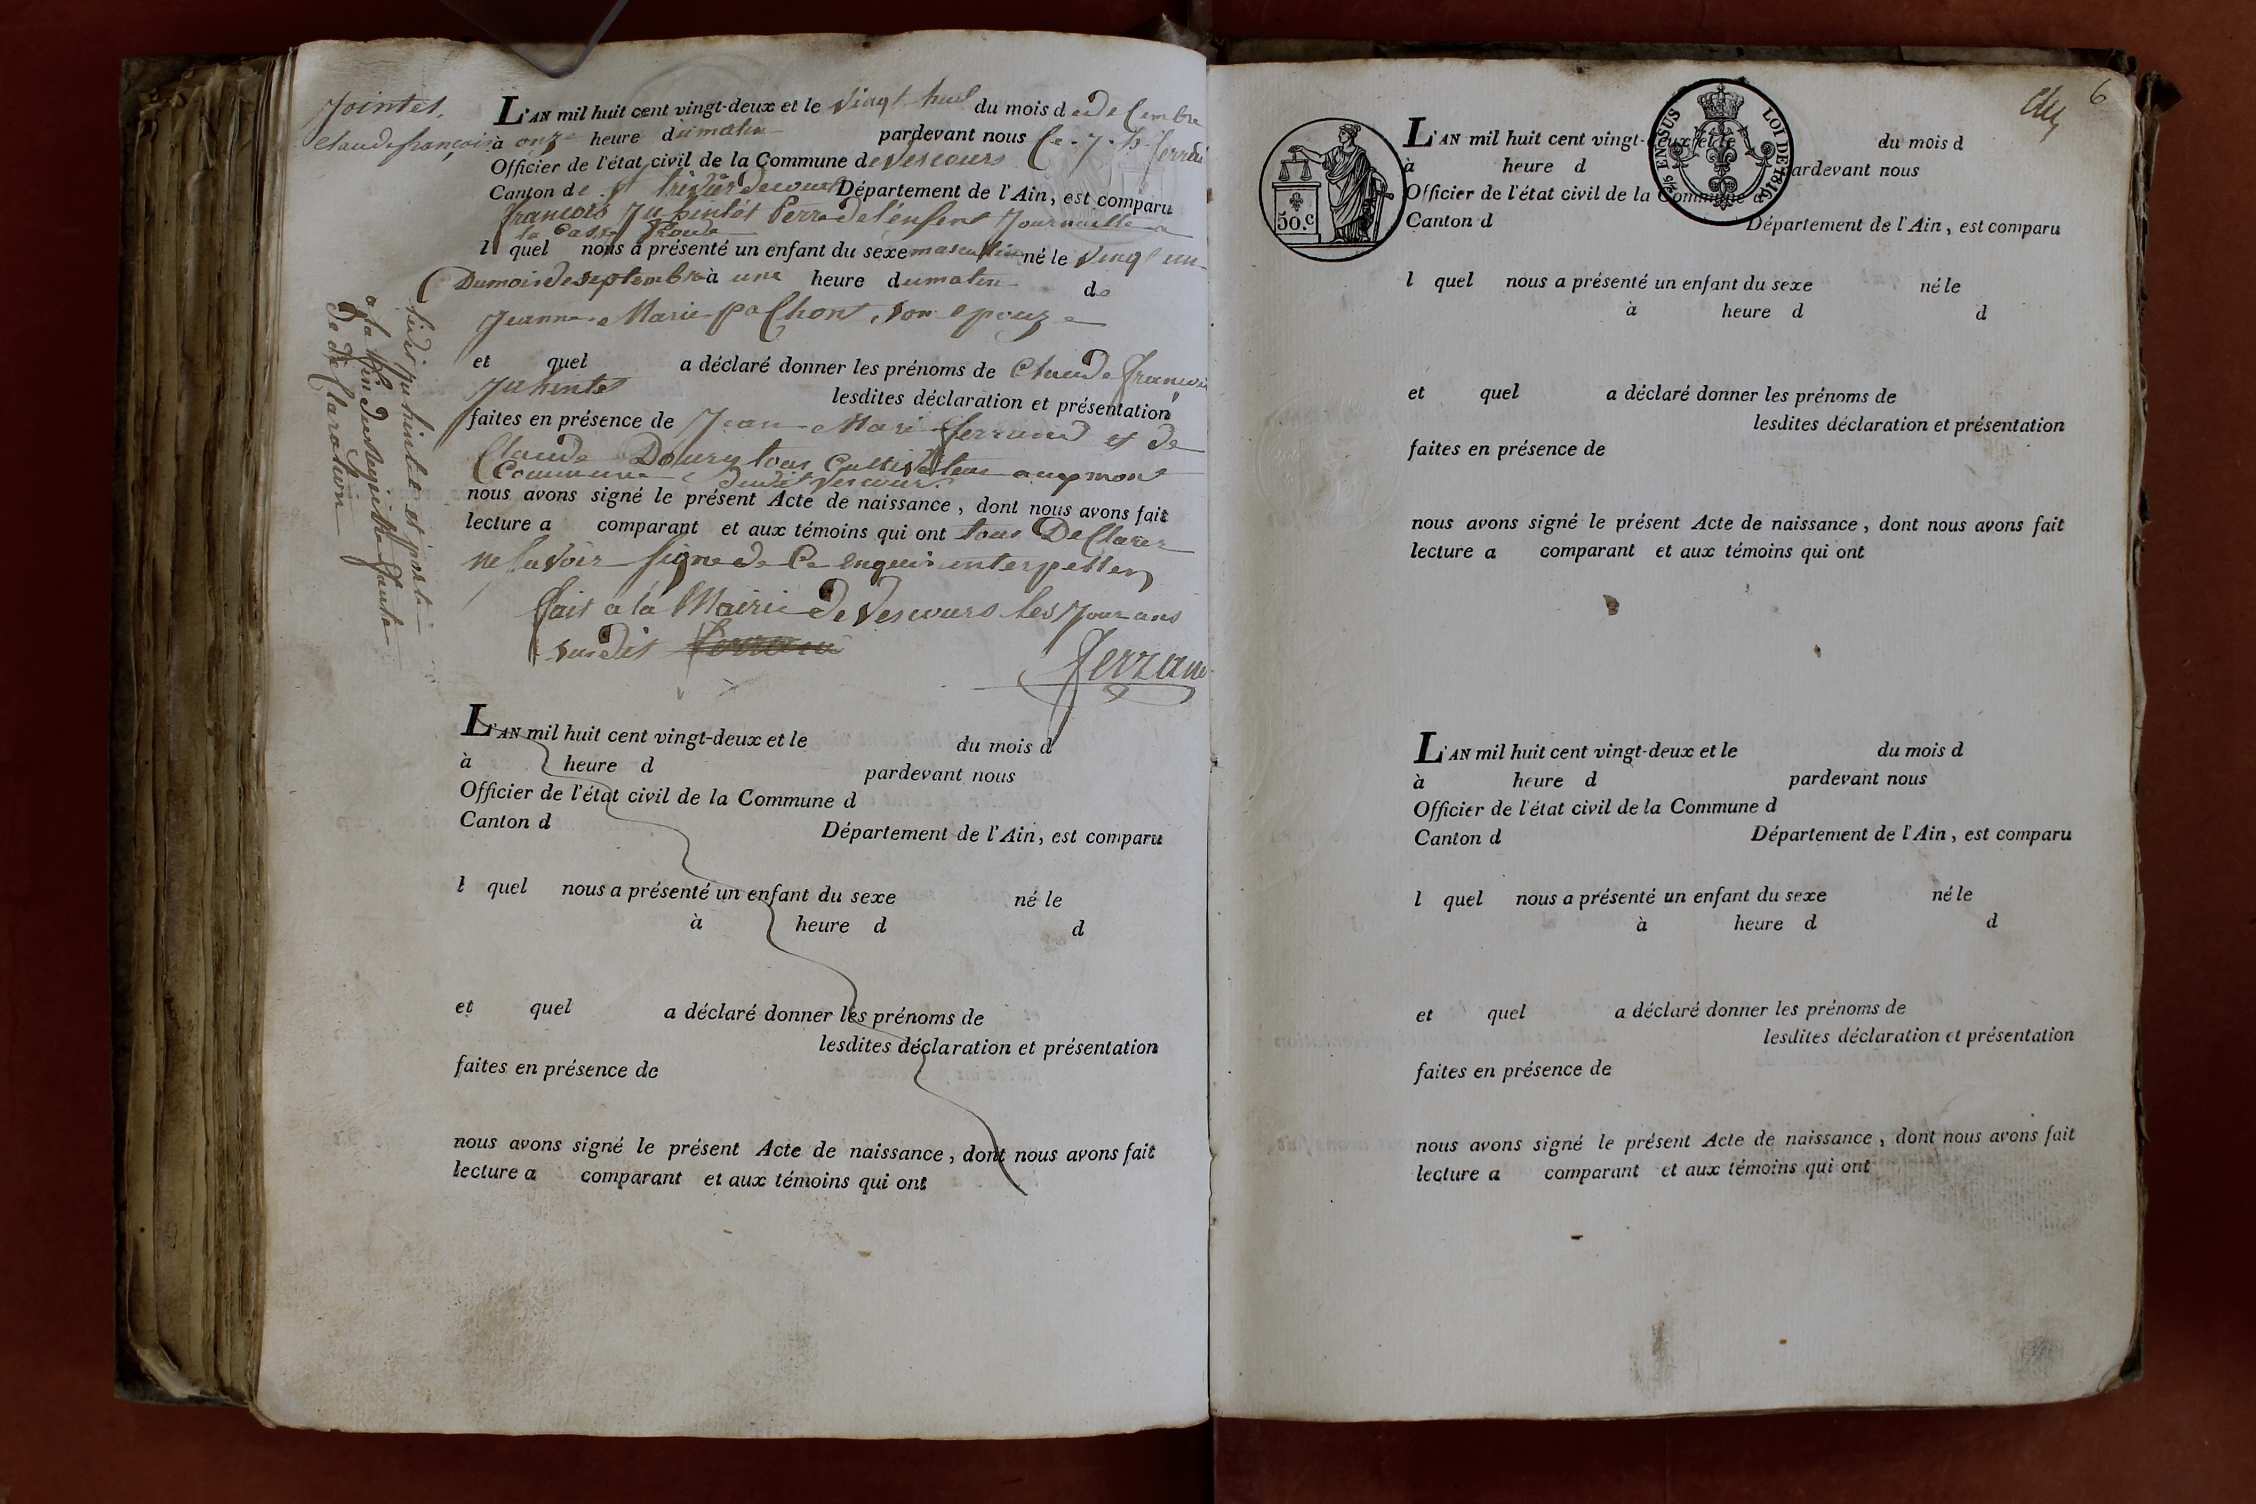 Jointet,
Claude françois
L'AN mil huit cent vingt-deux et le vingt huit du mois de decembre
à onze heure du matin pardevant nous
Officier de l'état civil de la Commune de Vescours
Canton de St Département de l'Ain, est comparu
françois de l'enfant Journallie
l quel nous a présenté un enfant du sexe masculin né le vingt un
Du mois de septembre à une heure du matin de
Jeanne Marie pochon, son epouze
et quel a déclaré donner les prénoms de Claude françois
lesdites déclaration et présentation
faites en présence de Jean Marie ferrand et de
Claude Doury tous Cultivateur
Commune dudit Vescours
nous avons signé le présent Acte de naissance, dont nous avons fait
lecture a comparant et aux témoins qui ont tous Declarez
ne savoir signe de Ce enquis interpeller
fait a la Mairie de Vescours les Jour ans
susdit
Ferrand
a la fin du Registre faute
de declaration
L'AN mil huit cent vingt-deux et le du mois d
à heure d pardevant nous
Officier de l'état civil de la Commune d
Canton d Département de l'Ain, est comparu
l quel nous a présenté un enfant du sexe né le
à heure d d
et quel a déclaré donner les prénoms de
lesdites déclaration et présentation
faites en présence de
nous avons signé le présent Acte de naissance, dont nous avons fait
lecture a comparant et aux témoins qui ont
6
50.c
EN SUS LOI DE 1816
L'AN mil huit cent vingt-deux et le du mois d
à heure d pardevant nous
Officier de l'état civil de la Commune d
Canton d Département de l'Ain, est comparu
l quel nous a présenté un enfant du sexe né le
à heure d d
et quel a déclaré donner les prénoms de
lesdites déclaration et présentation
faites en présence de
nous avons signé le présent Acte de naissance, dont nous avons fait
lecture a comparant et aux témoins qui ont
L'AN mil huit cent vingt-deux et le du mois d
à heure d pardevant nous
Officier de l'état civil de la Commune d
Canton d Département de l'Ain, est comparu
l quel nous a présenté un enfant du sexe né le
à heure d d
et quel a déclaré donner les prénoms de
lesdites déclaration et présentation
faites en présence de
nous avons signé le présent Acte de naissance, dont nous avons fait
lecture a comparant et aux témoins qui ont